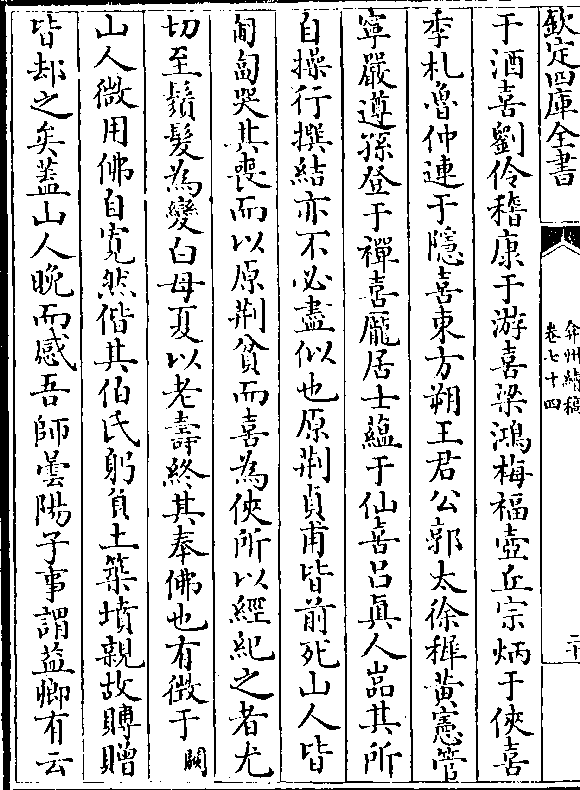 欽定四庫全書
弇州續稿
卷七十四
二十
于酒喜劉伶稽康于游喜梁鴻梅福壺丘宗炳于俠喜
季札魯仲連于隱喜東方朔王君公郭太徐穉黃憲管
寧嚴遵孫登于禪喜龐居士蘊于仙喜呂眞人嵓其所
自操行撰結亦不必盡似也原荆貞甫皆前死山人皆
匍匐哭其喪而以原荆貧而喜為俠所以經紀之者尤
切至鬚髮為變白母夏以老壽終其奉佛也有微于闕
山人微用佛自寛然偕其伯氏躬負土築墳親故賻贈
皆却之矣蓋山人晚而感吾師曇陽子事謂益卿有云